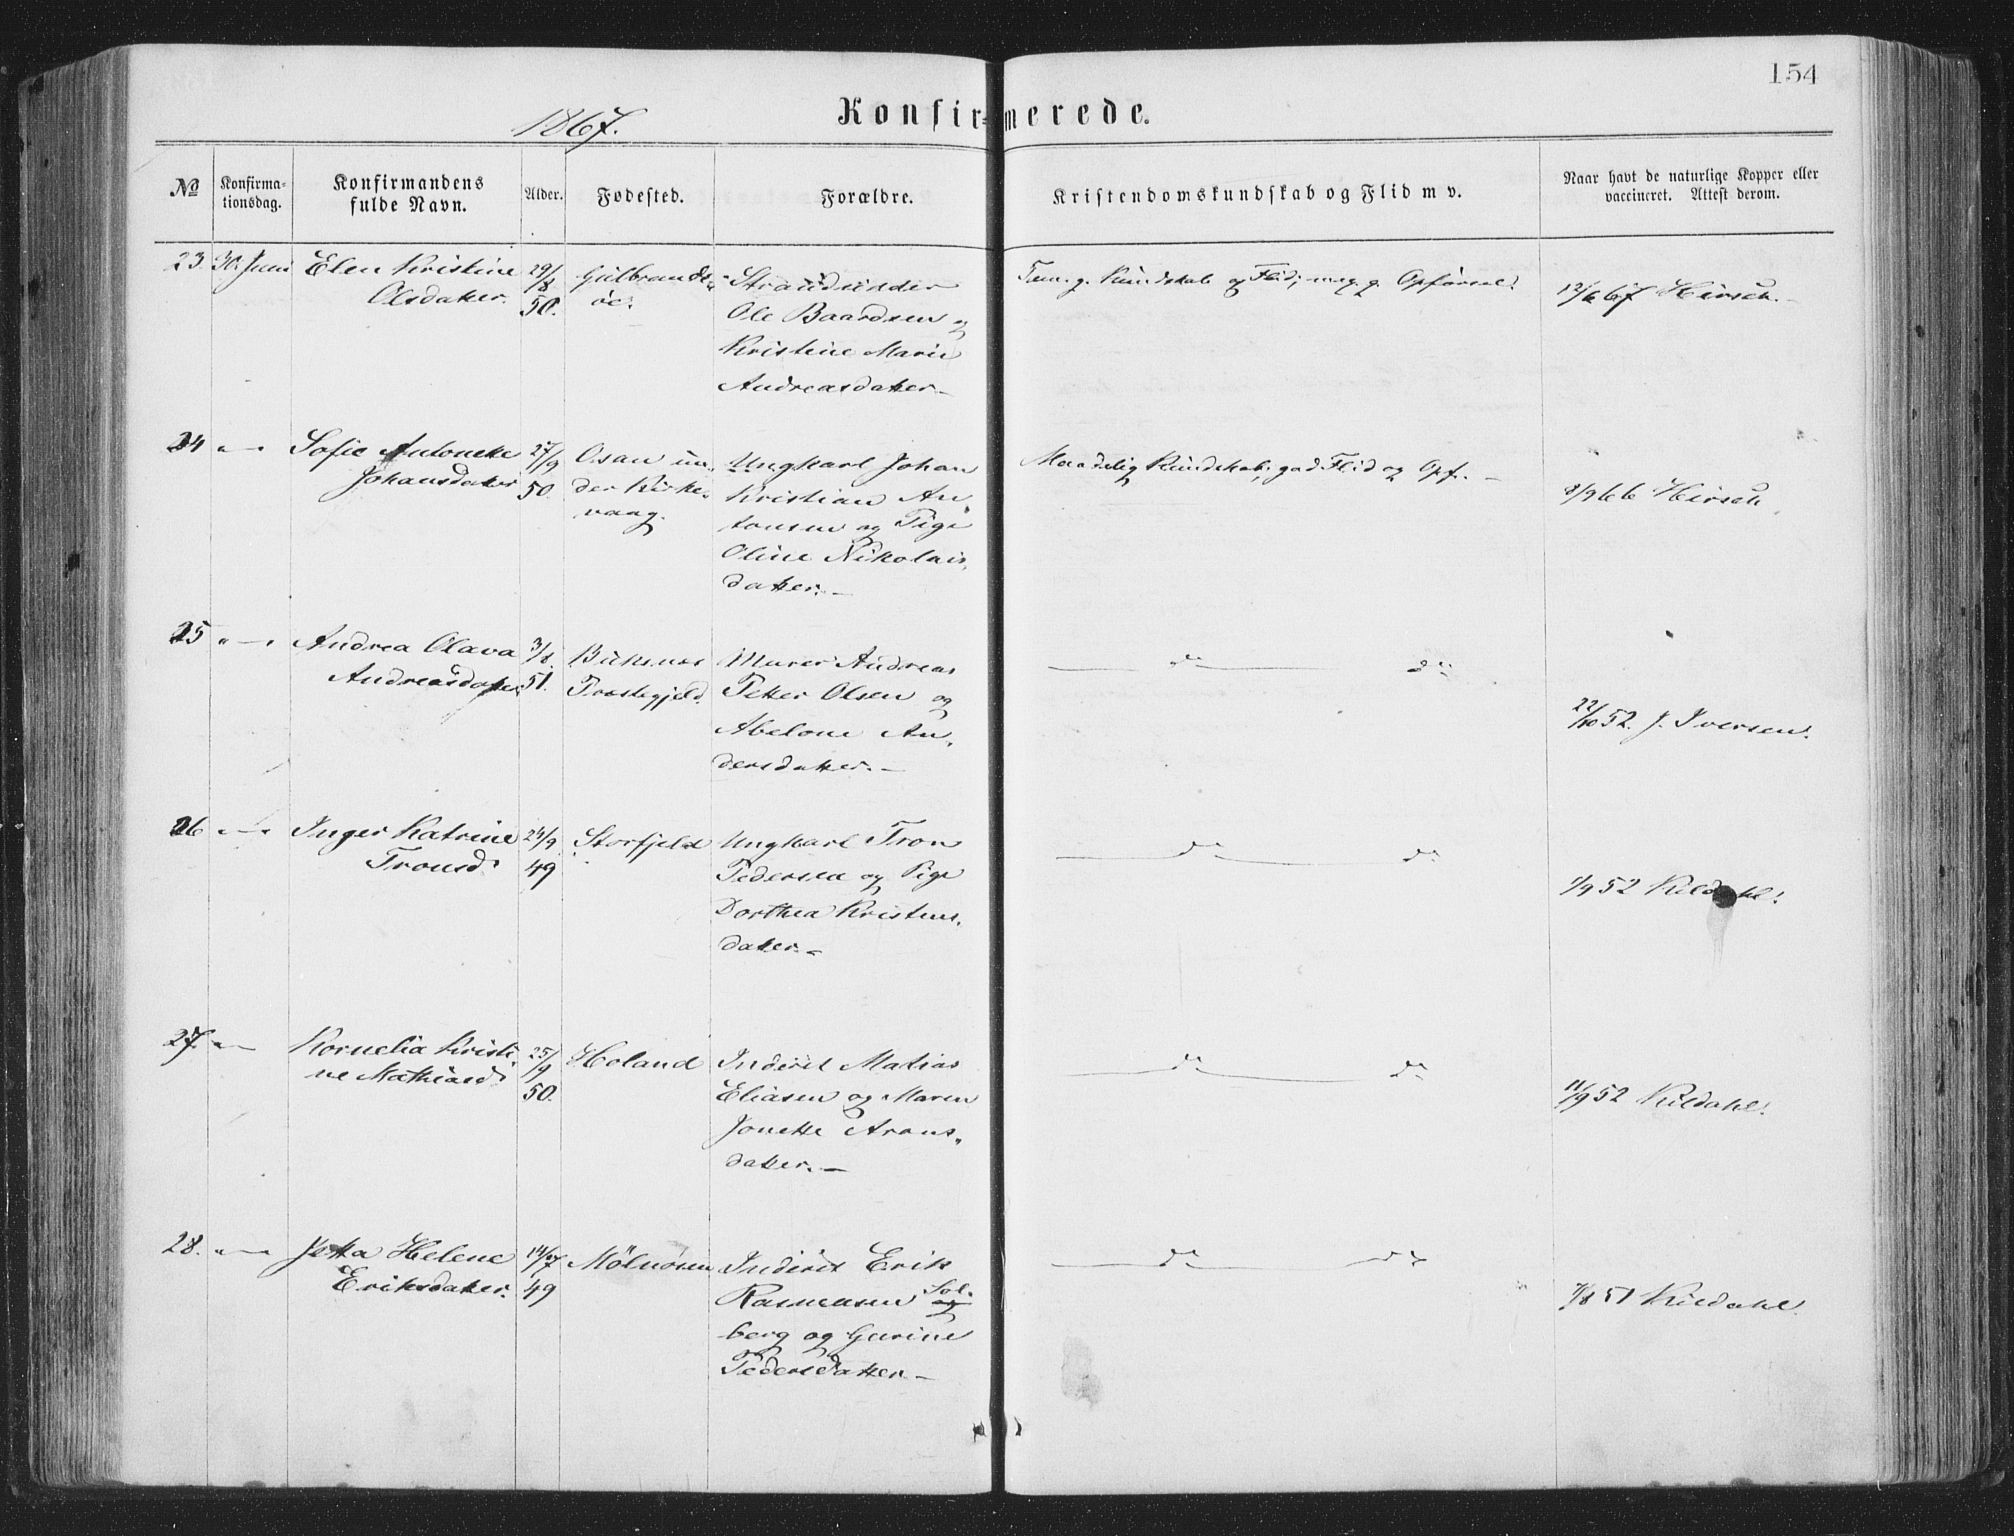 154
1867.
Konfirmerede.
№
Konfirma-
tionsdag.
Konfirmandens
fulde Navn.
Alder.
Fødested.
Forældre.
Kristendomskundskab og Flid m v.
Naar havt de naturlige Kopper eller
vaccineret. Attest derom.
23. 30. Juni Elen Kristine 29/8 Gulbrands-
Olsdatter. 50. øe.
Strandsidder
Ole Baardsen og
Kristine Marie
Andreasdatter.-
Tem. g. Kundskab og Flid; meg. g. Opførsel.
12/6 67 Hirsch.-
24 " — " Sofie Antonette 27/9 Osan un-
Johansdatter 50. der Kirke-
vaag.
Ungkarl Johan
Kristian An
tonsen og Pige
Oline Nikolais-
datter.-
Maadelig Kundskab; god Flid og Opf. -
8/9 66 Hirsch.
25 " — " Andrea Olava 3/8
Andreasdatter 51.
Præstegjeld.
Murer Andreas
Petter Olsen og
Abelone An-
dersdatter.-
do do
22/10 52. J. Iversen.
26 " — " Inger Katrine 24/9 Storfjeld
Tronsd. 49
Ungkarl Tron
Pedersen og Pige
Dorthea Kristens-
datter.-
do do
1/9 52 Kildahl.
27. " — Kornelia Kristi- 25/9 Holand
ne Mathiasd. 50.
Inderst Matias
Eliasen og Maren
Jonette Arons-
datter.-
do do
11/9 52 Kildahl.
28. " — " Jetta Helene 14/7 Mölnösen
Eriksdatter. 49
Inderst Erik
Rasmusen Sol-
berg og Gurine
Pedersdatter.-
do do
7/8 51 Kildahl.